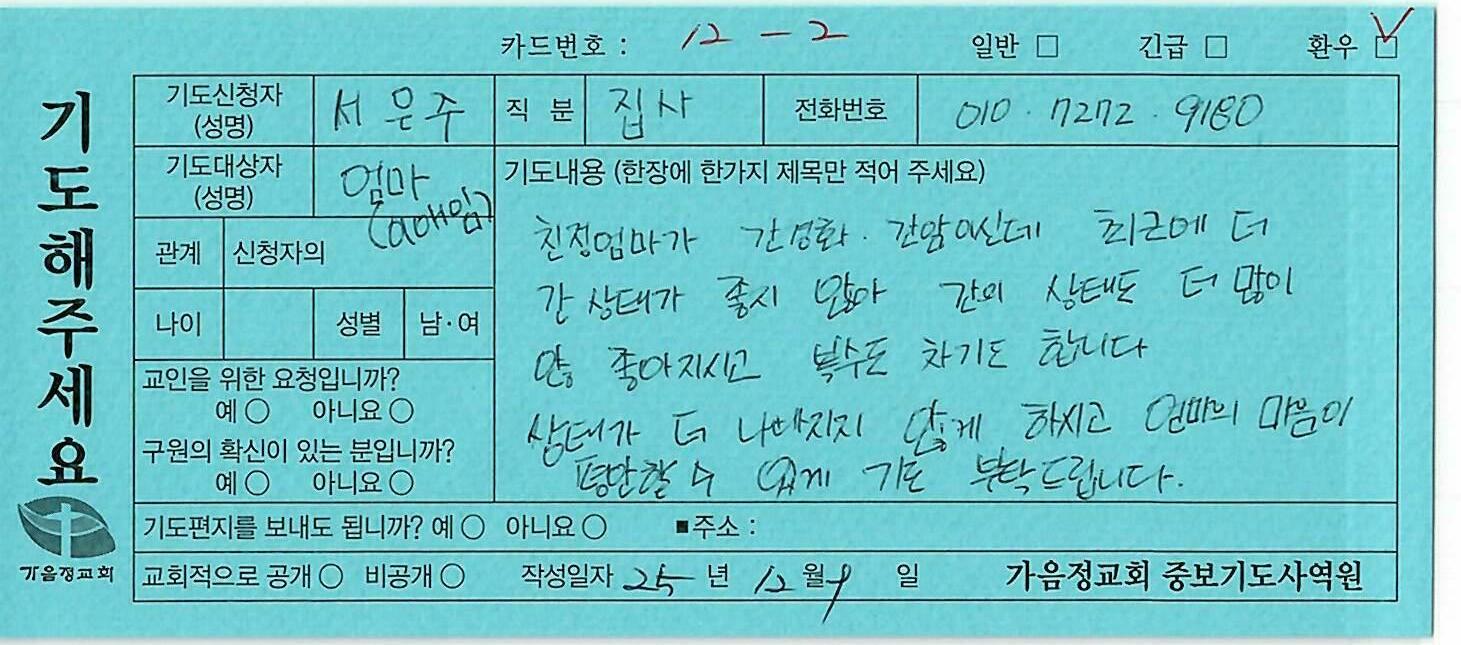 카드번호 : 12 - 2 일반 □ 긴급 □ 환우 □
기도해주세요
기도신청자 (성명) 서은주 직 분 집사 전화번호 010 · 7272 · 9180
기도대상자 (성명) 엄마
(이애임)
관계 신청자의
나이 성별 남·여
교인을 위한 요청입니까?
예 ○ 아니요 ○
구원의 확신이 있는 분입니까?
예 ○ 아니요 ○
기도내용 (한장에 한가지 제목만 적어 주세요)
친정엄마가 간경화 · 간암이신데 최근에 더
간 상태가 좋지 않아 간의 상태도 더 많이
안 좋아지시고 복수도 차기도 합니다
상태가 더 나빠지지 않게 하시고 엄마의 마음이
평안할 수 있게 기도 부탁드립니다.
기도편지를 보내도 됩니까? 예 ○ 아니요 ○ ■주소 :
교회적으로 공개 ○ 비공개 ○ 작성일자 25 년 12 월 9 일 가음정교회 중보기도사역원
가음정교회